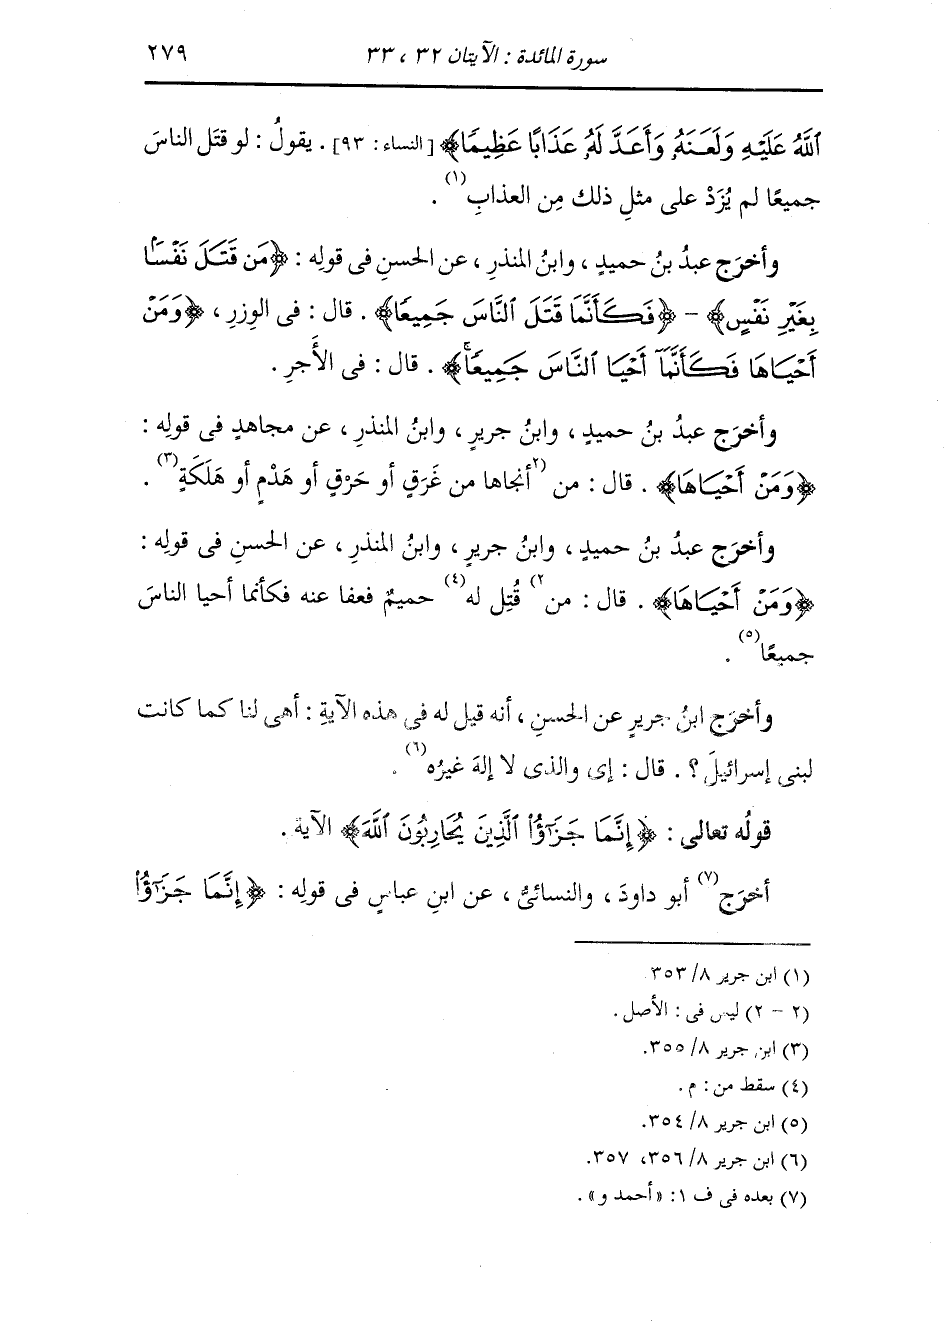 سورة المائدة : الآيتان ٣٢ ، ٣٣ ٢٧٩
ٱللَّهُ عَلَيْهِ وَلَعَنَهُۥ وَأَعَدَّ لَهُۥ عَذَابًا عَظِيمًا﴾ [النساء : ٩٣] . يقولُ : لو قتَل الناسَ
جميعًا لم يُزَدْ على مثلِ ذلك مِن العذابِ(١) .
وأخرَج عبدُ بنُ حميدٍ ، وابنُ المنذرِ ، عن الحسنِ فى قولِه : ﴿مَن قَتَلَ نَفْسًۢا
بِغَيْرِ نَفْسٍ﴾ - ﴿فَكَأَنَّمَا قَتَلَ ٱلنَّاسَ جَمِيعًا﴾ . قال : فى الوِزرِ ، ﴿وَمَنْ
أَحْيَاهَا فَكَأَنَّمَآ أَحْيَا ٱلنَّاسَ جَمِيعًاۚ﴾ . قال : فى الأَجرِ .
وأخرَج عبدُ بنُ حميدٍ ، وابنُ جريرٍ ، وابنُ المنذرِ ، عن مجاهدٍ فى قولِه :
﴿وَمَنْ أَحْيَاهَا﴾ . قال : من (٢أنجاها من غَرَقٍ أو حَرْقٍ أو هَدْمٍ أو هَلَكَةٍ(٣) .
وأخرَج عبدُ بنُ حميدٍ ، وابنُ جريرٍ ، وابنُ المنذرِ ، عن الحسنِ فى قولِه :
﴿وَمَنْ أَحْيَاهَا﴾ . قال : من٢) قُتِل له(٤) حميمٌ فعفا عنه فكأنما أحيا الناسَ
جميعًا(٥) .
وأخرَج ابنُ جريرٍ عن الحسنِ ، أنه قيل له فى هذه الآيةِ : أهى لنا كما كانت
لبنى إسرائيلَ ؟ . قال : إى والذى لا إلهَ غيرُه(٦) .
قولُه تعالى : ﴿إِنَّمَا جَزَٰٓؤُا۟ ٱلَّذِينَ يُحَارِبُونَ ٱللَّهَ﴾ الآية .
أخرَج(٧) أبو داودَ ، والنسائىُّ ، عن ابنِ عباسٍ فى قولِه : ﴿إِنَّمَا جَزَٰٓؤُا۟
(١) ابن جرير ٨/ ٣٥٣
(٢ - ٢) ليس فى : الأصل .
(٣) ابن جرير ٨/ ٣٥٥.
(٤) سقط من : م .
(٥) ابن جرير ٨/ ٣٥٤.
(٦) ابن جرير ٨/ ٣٥٦، ٣٥٧.
(٧) بعده فى ف ١: «أحمد و» .